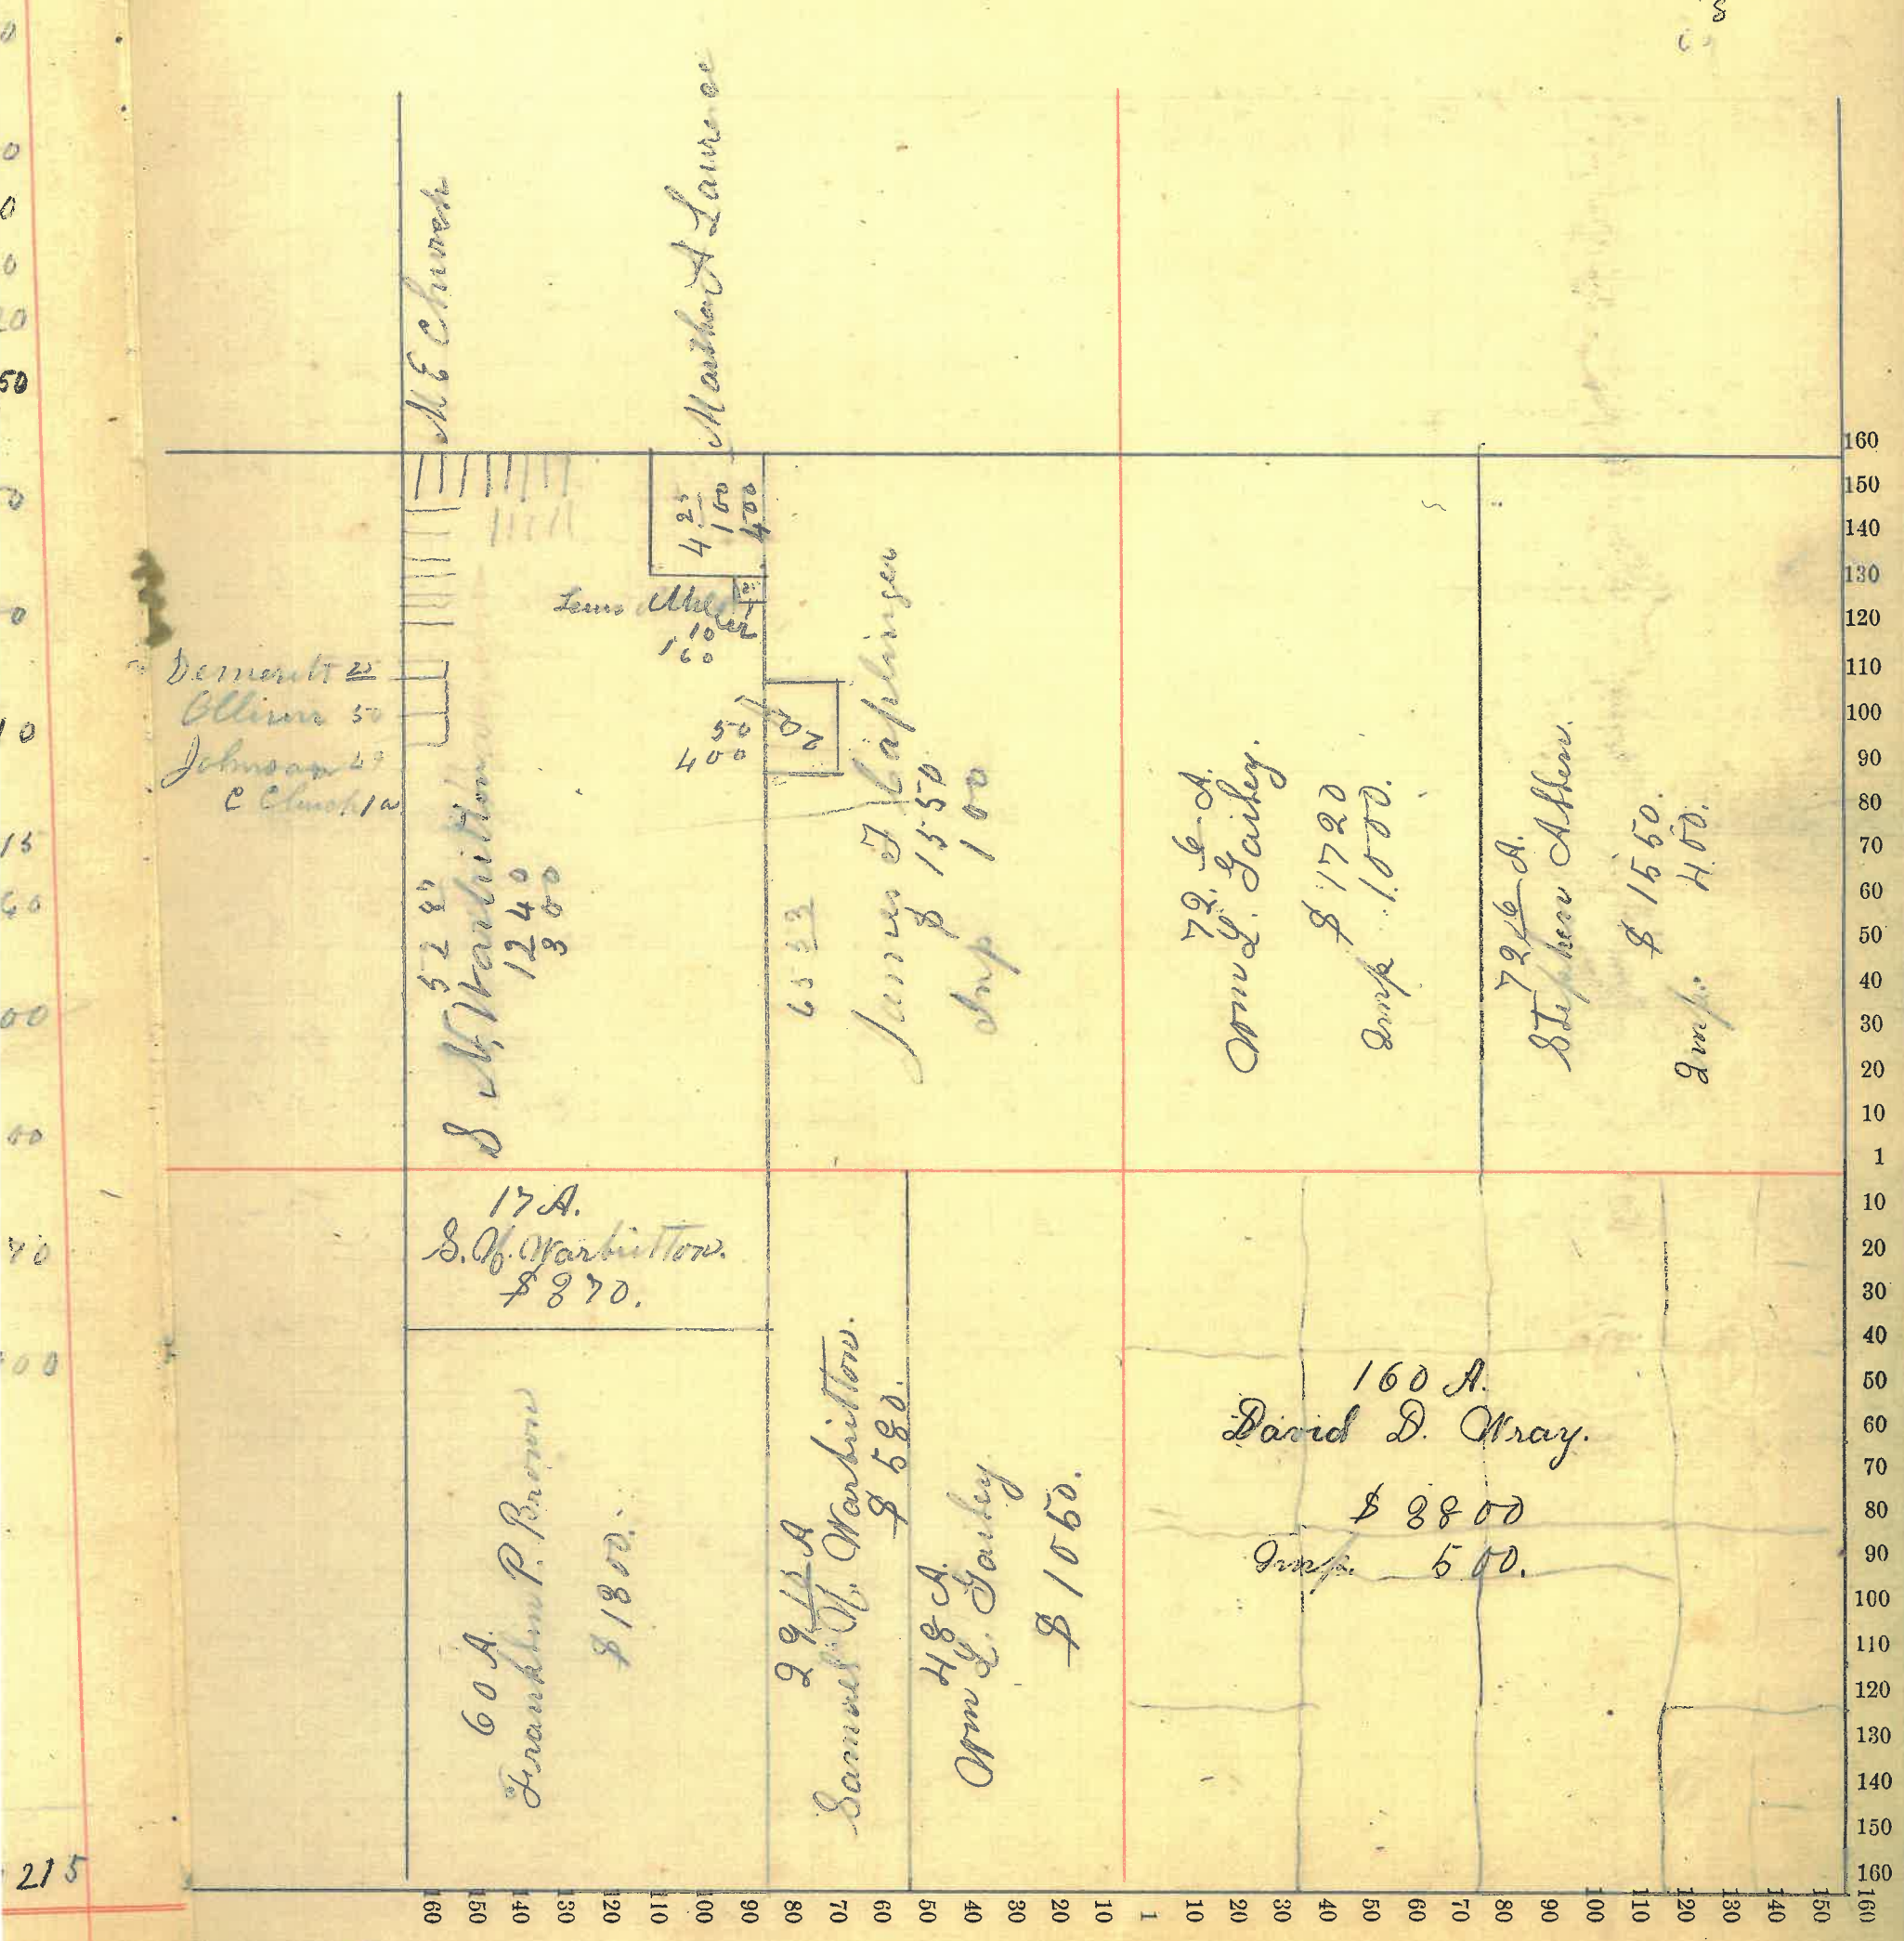 M E Church
Martha A Laurence
4 25/100
400
10
160
Demeritt 25
50
Johnson
C Church
50
400
S N Warbritton
1240
300
James F Caplinger
$ 1550
Imp 100
72.6 A.
Wm L. Gaibey.
$ 1720
Imp 1000.
72.6 A.
Stephen Allen.
$ 1550.
Imp. 400.
17 A.
S. N. Warbritton.
$ 370.
60 A.
Franklin P. Brown
$ 1300.
29 15 A
Samuel N. Warbritton.
$ 580.
48 A.
Wm L. Gaibey
$ 1050.
160 A.
David D. Wray.
$ 3800
Imp. 500.
160
150
140
130
120
110
100
90
80
70
60
50
40
30
20
10
1
10
20
30
40
50
60
70
80
90
100
110
120
130
140
150
160
160 150 140 130 120 110 100 90 80 70 60 50 40 30 20 10 1 10 20 30 40 50 60 70 80 90 100 110 120 130 140 150 160
50
10
15
60
00
00
70
00
215